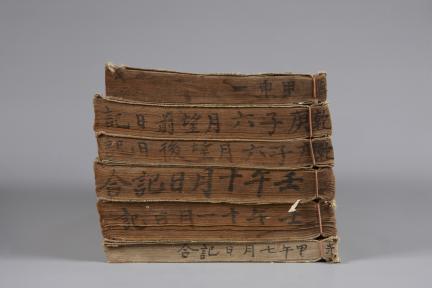 甲東一
乾 庚子六月望前日記
子六月望後日記
壬午十月日記合
壬午十一月日記
甲午七月日記合